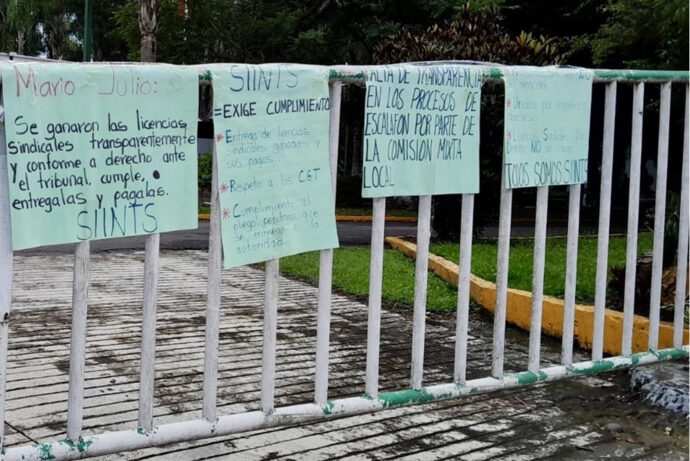 Mario Julio:
Se ganaron las licencias
sindicales transparentemente
y conforme a derecho ante
el tribunal, cumple,
entregalas y pagalas.
SIINTS
SIINTS
=EXIGE CUMPLIMIENTO
* Entrega de licencias
sindicales ganadas y
sus pagos.
* Respeto a las CGT
* Cumplimiento al
pliego petitorio que
se entregó a la
autoridad
FALTA DE TRANSPARENCIA
EN LOS PROCESOS DE
ESCALAFON POR PARTE
DE LA COMISION MIXTA
LOCAL
* Unidos por nuestros
TODOS SOMOS SIINTS